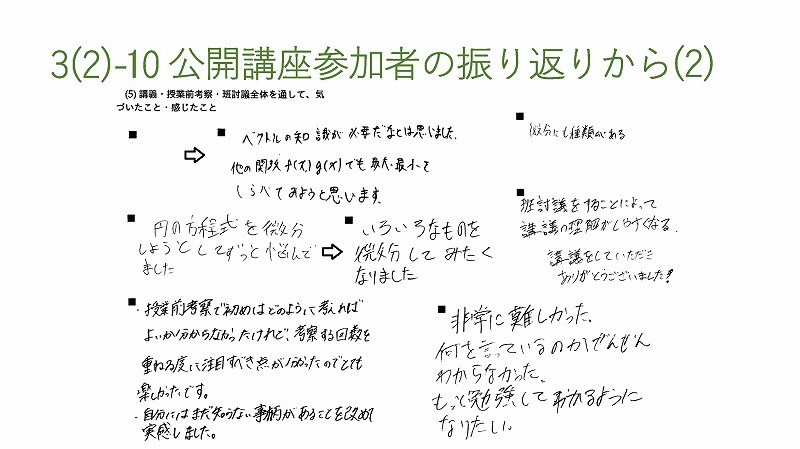 3(2)-10 公開講座参加者の振り返りから(2)
(5) 講義・授業前考察・班討議全体を通して、気
づいたこと・感じたこと
ベクトルの知識が必要だなとは思いました。
他の関数 f(x), g(x) でも最大・最小を
しらべてみようと思います。
微分にも種類がある
円の方程式を微分
しようとしてずっと悩んで
ました
いろいろなものを
微分してみたく
なりました
班討議をすることによって
講議の理解がしやすくなる。
講議をしていただき
ありがとうございました!
・授業前考察で初めはどのように考えれば
よいか分からなかったけれど、考察する回数を
重ねる度に注目すべき点が分かったのでとても
楽しかったです。
・自分にはまだ知らない事柄があることを改めて
実感しました。
非常に難しかった。
何を言っているのかぜんぜん
わからなかった。
もっと勉強してわかるように
なりたい。